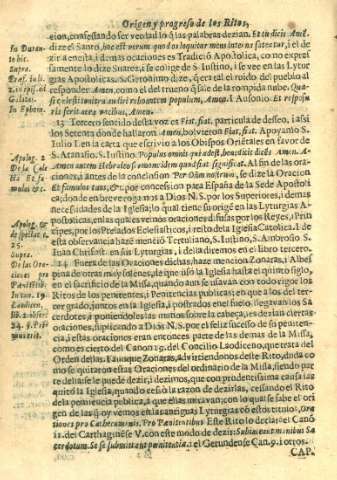 Origen, y progreso de los Ritos,
cion, confessando ser verdad lo q̃ las palabras dezian. Et tu dicis Amẽ.
dize el Santo, hoc est verum quod os loquitur mens interna fateatur, i el de
zir a enesta, i demas oraciones es Tradiciõ Apostolica, como expres-
samente lo dize Suarez, i se colige de S. Iustino, i se vee en las Lytur
gias Apostolicas. S. Geronimo dize, q̃ era tal el ruido del pueblo al
responder Amen, como el del trueno q̃ sale de la rompida nube. Quasi
celestis tonitrui audiri reboantem populum, Amen. I Ausonio. Et respõsu
ferit aera vocibus, Amen.
13 Tercero sentido desta voz es Fiat, fiat, particula de desseo, i assi
los Setenta donde hallaron Amen, bolvieron Fiat, fiat. Apoyanto S.
Iulio I. en la carta que escrivio a los Obispos Oriẽtales en favor de
S. Atanasio. S. Iustino. Populus omnis qui adest, benedicit dicẽs Amen. A-
Amen autem Hebraico sermone idem quod fiat significat. Al fin de las ora-
ciones, i antes de la conclusion Per Dñm nostrum, se dize la Oracion
Et famulos tuos, &c. por concession para España de la Sede Apostoli
ca; donde en breve rogamos a Dios N. S. por los Superiores, i demas
necessidades de la Iglesia; lo qual tiene su origẽ en las Lyturgias A-
postolicas, en las quales vemos oraciones difusas por los Reyes, Prin
cipes, por los Prelados Eclesiasticos, i resto de la Iglesia Catolica. I de
esta observancia hazẽ mencio Tertuliano, S. Iustino, S. Ambrosio S.
Iuan Chrisost. en su Lyturgia, i della diremos en el libro tercero.
14 Fuera de las Oraciones dichas, haze mencion Zonaras, i Albes
pina de otras muy solenes, de que usò la Iglesia hasta el quinto siglo,
en el sacrificio de la Missa, quando aun se usavan con todo rigor los
Ritos de los penitentes, i Penitencias publicas; en que a los del ter-
cer grado, juntos en la Iglesia, i postrados en el suelo, llegavan los Sa
cerdotes, i poniendoles las manos sobre la cabeça, les dezian ciertas
oraciones, suplicando a Dios N. S. por el feliz sucesso de su peniten-
cia, i estas oraciones eran entonces parte de las demas de la Missa,
como es cierto del Canon 19. del Concilio Laodiceno, que trata del
Orden dellas. I aunque Zonaras, advirtiendonos deste Rito, duda co
mo se quitaron estas Oraciones del ordinario de la Missa, siendo par
te della: se le puede dezir, i dezimos, que con prudentissima causa las
quitò la Iglesia, quando cessò la razon de dezirlas, cessando el Rito
de la penitencia publica, a que ellas miravan; con lo qual se sabe el ori
gen de las q̃ oy vemos en las antiguas Lyturgias cõ estos titulos, Ora
tiones pro Cathecumenis, Pro Pœnitentibus Este Rito lo declara el Canõ
11. del Carthaginẽse V. con este modo de dezir: Subiecientem manibus Sa
cerdotum. Se se submittant pœnitentia, i el Gerundense Can. 9. i otros.
CAP.
In Duran-
to hic.
Supra.
Præf. in li.
2. in epis. ad
Galatas.
In Ephem.
Apolog. 2.
De la Cole
cta Et fa-
mulos &c.
Apolog. &
25.
Supra.
De las Ora
ciones pro
Pœnitẽtib.